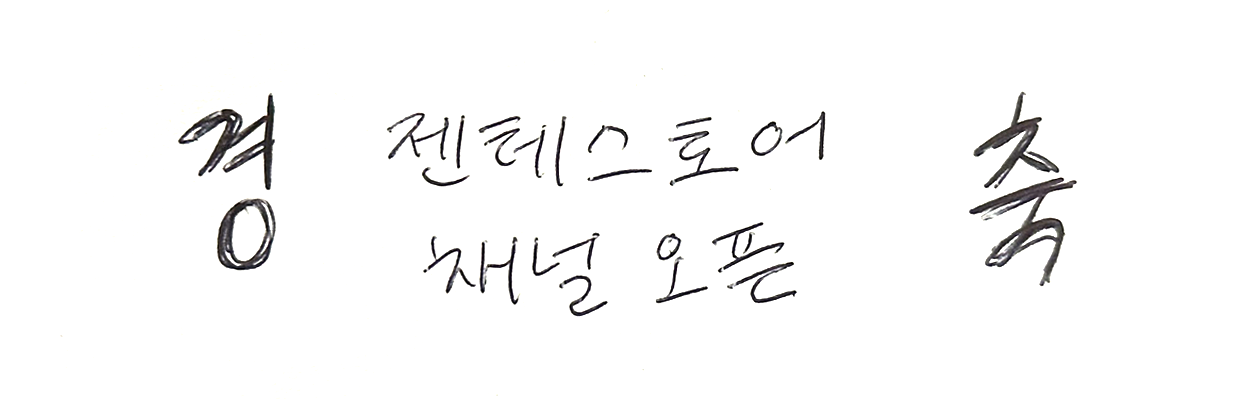 경 젠테스토어 축
채널 오픈